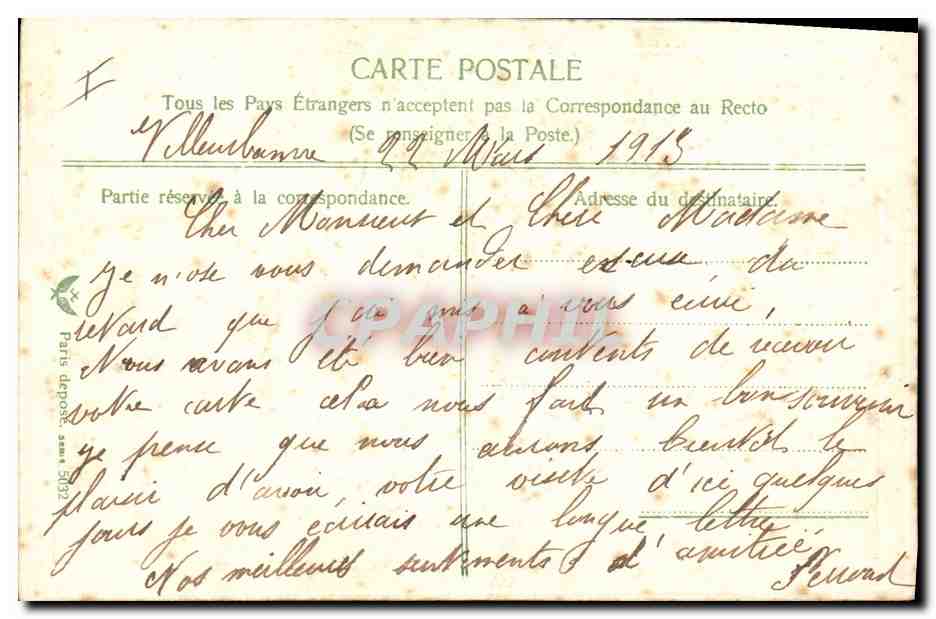 CARTE POSTALE
Tous les Pays Étrangers n'acceptent pas la Correspondance au Recto
(Se renseigner à la Poste.)
Villeurbanne 22 Mars 1913
Partie réservée à la correspondance.
Adresse du destinataire.
Cher Monsieur et Chère Madame
je n'ose vous demander du
retard que j'ai mis à vous
Nous avons été bien contents de recevoir
votre carte cela nous fait un bon souvenir
je pense que nous aurons bientôt le
plaisir d'avoir votre visite d'ici quelques
jours je vous écrirais une longue lettre
Nos meilleurs sentiments d'amitiée
CPAPHIL
Paris déposé. 5032